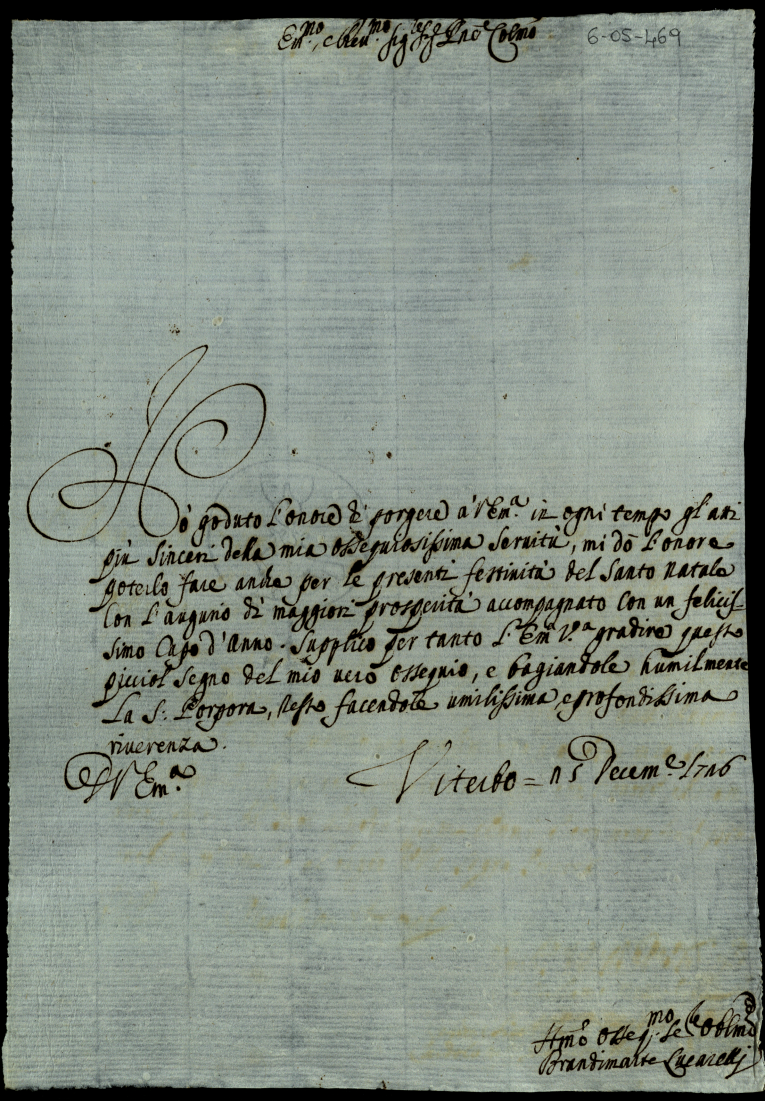 Em.mo, e Rev.mo Sig.re Sig.re Pne Colmo
6-05-469
Hò goduto l'onore di porgere à V Em.a in ogni tempo gl'atti
più sinceri della mia ossequiosissima servitù, mi dò l'onore
poterlo fare anche per le presenti festività del Santo Natale
con l'augurio di maggiori prosperità accompagnato con un felicis-
simo Capo d'Anno. Supplico per tanto l'Em V.a gradire questo
picciol segno del mio vero ossequio, e bagiandole humilmente
la S: Porpora, resto facendole umilissima, e profondissima
riverenza.
D V Em.a
Viterbo = 15 Decem.e 1726
Hmo Osseq.mo Se.re Oblmo
Brandimarte Lucarelli